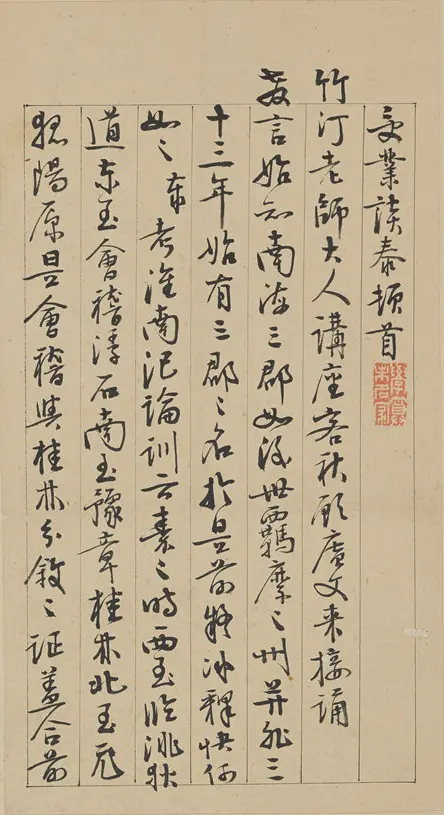 受業談泰頓首
竹汀老師大人講座客秋顧廣文來接誦
教言始知南海三郡如後世羈縻之州並非三
十三年始有三郡之名於是前疑冰釋快何
如之泰考淮南氾論訓云秦之時西至臨洮狄
道東至會稽浮石南至豫章桂林北至飛
狐陽原是會稽與桂林分敘之證蓋合前